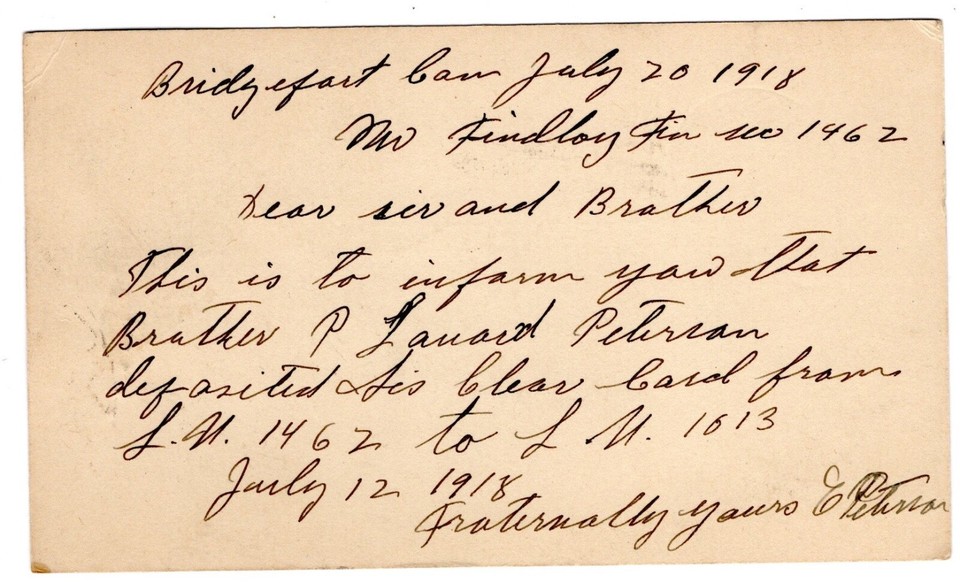 Bridgefort Con July 20 1918
Mr Findloy Fin sec 1462
Dear sir and Brother
This is to inform you that
Brother P Lauard Peterson
deposited his Clear Card from
L.U. 1462 to L U. 1013
July 12 1918
Fraternally yours E Peterson